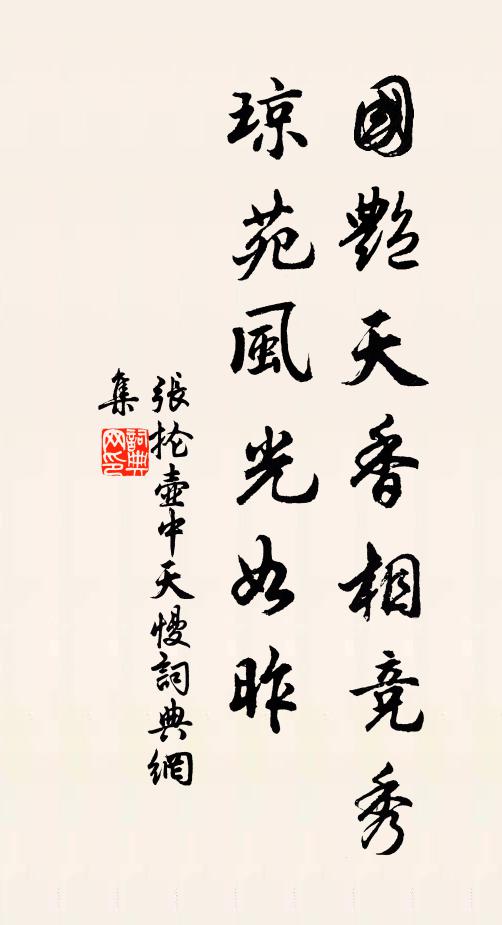 國艷天香相竞秀
琼苑風光如昨
張抡壺中天慢詞典網
集
詞典网印